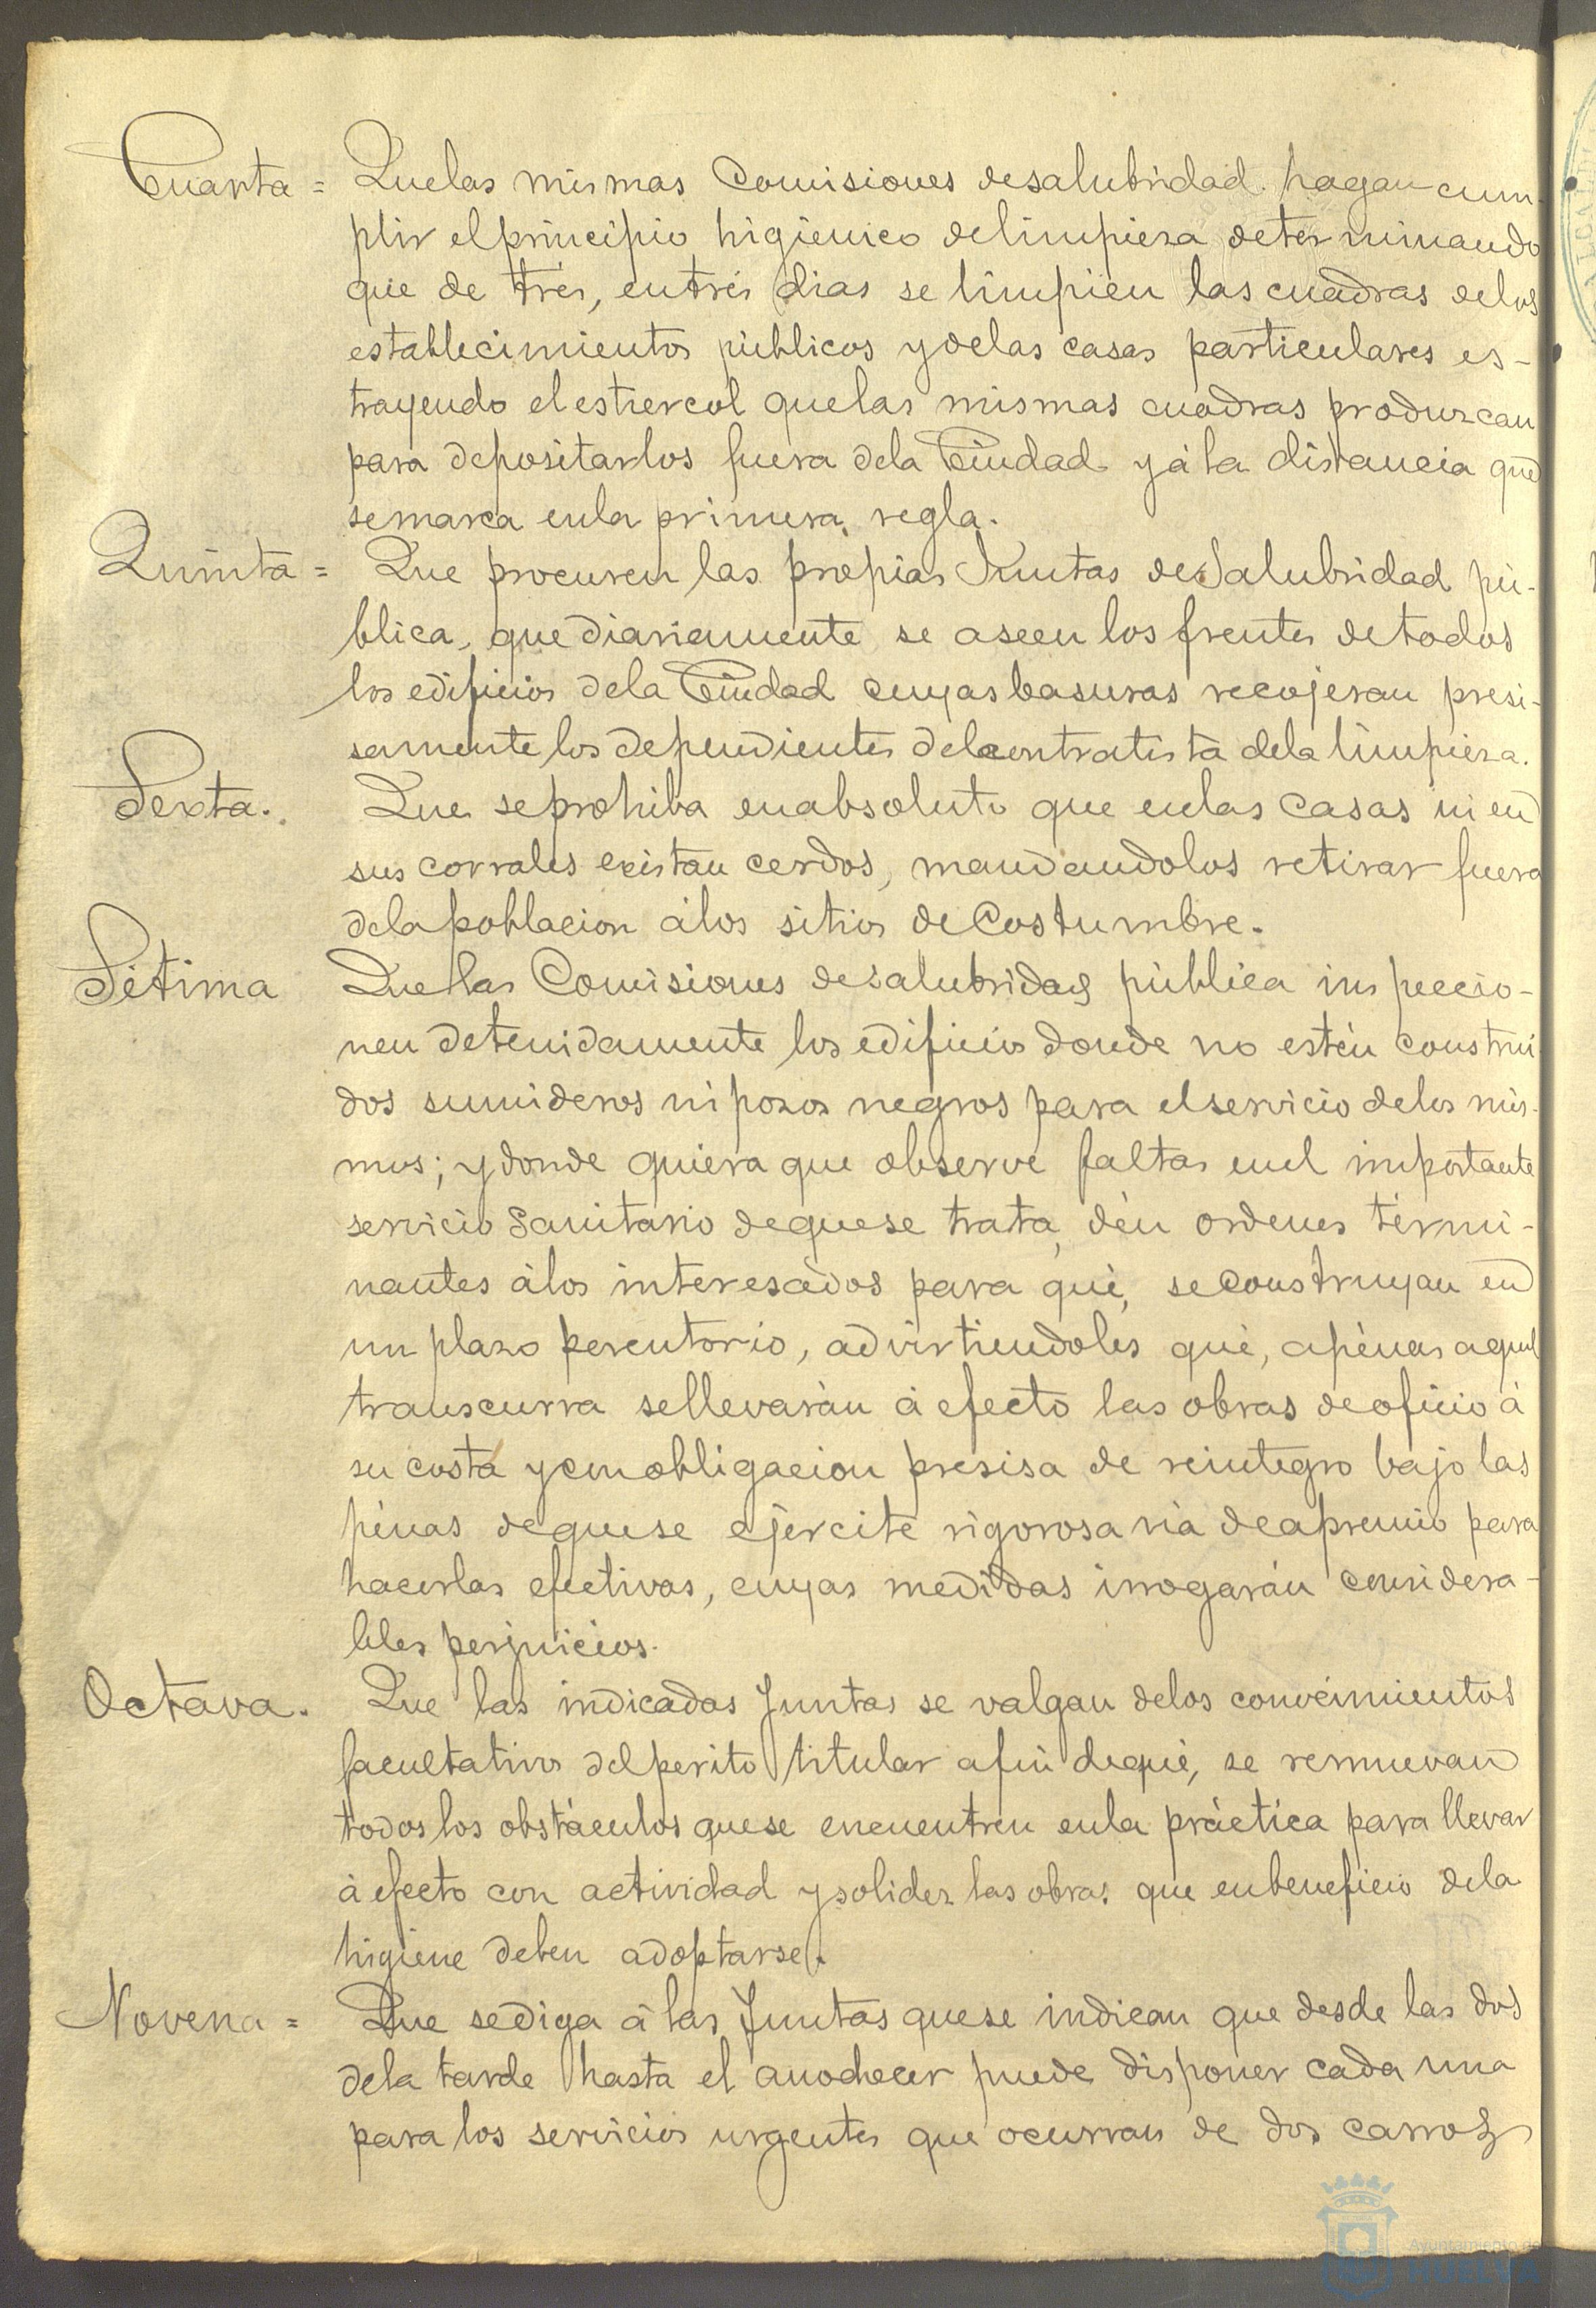 Cuarta = Que las mismas Comisiones de salubridad hagan cum-
plir el principio higiénico de limpieza determinando
que de tres, en tres dias se limpien las cuadras de los
establecimientos públicos y de las casas particulares es-
trayendo el estiercol que las mismas cuadras produzcan
para depositarlos fuera de la Ciudad y á la distancia que
se marca en la primera regla.
Quinta = Que procuren las propias Juntas de Salubridad pú-
blica, que diariamente se aseen los frentes de todos
los edificios de la Ciudad cuyas basuras recojeran presi-
samente los dependientes del contratista de la limpieza.
Sexta. Que se prohiba en absoluto que en las casas ni en
sus corrales existan cerdos, mandandolos retirar fuera
de la poblacion á los sitios de Costumbre.
Sétima Que las Comisiones de salubridad pública inspeccio-
nen detenidamente los edificios donde no estén construi
dos sumideros ni pozos negros para el servicio de los mis-
mos; y donde quiera que observe faltas en el importante
servicio Sanitario de que se trata, dén ordenes térmi-
nantes á los interesados para qué, se construyan en
un plazo perentorio, advirtiendoles qué, apénas aquel
transcurra se llevarán á efecto las obras de oficio á
su costa y con obligacion presisa de reintegro bajo las
pénas de que se ejercite rigorosa via de apremio para
hacerlas efectivas, cuyas medidas irrogarán considera-
bles perjuicios.
Octava. Que las indicadas Juntas se valgan de los conocimientos
facultativos del perito titular a fin de qué, se remuevan
todos los obstáculos que se encuentren en la práctica para llevar
á efecto con actividad y solidez las obras que en beneficio de la
higiene deben adoptarse.
Novena = Que se diga á las Juntas que se indican que desde las dos
de la tarde hasta el anochecer puede disponer cada una
para los servicios urgentes que ocurran de dos carros
Ayuntamiento de
HUELVA